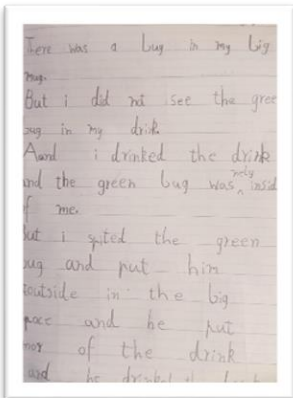 Tere was a bug in my big
mug.
But i did not see the gree
bug in my drink.
Aand i drinked the drink
nd the green bug was nely insid
f me.
but i spited the green
bug and put him
outside in the big
and he put
mor of the drink
and he drinked the